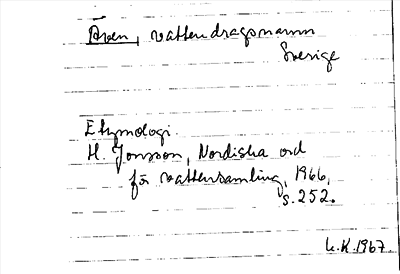 Åven, vattendragsnamn
Sverige
Etymologi
H. Jonsson, Nordiska ord
för vattensamling, 1966,
s. 252.
L.K. 1967.